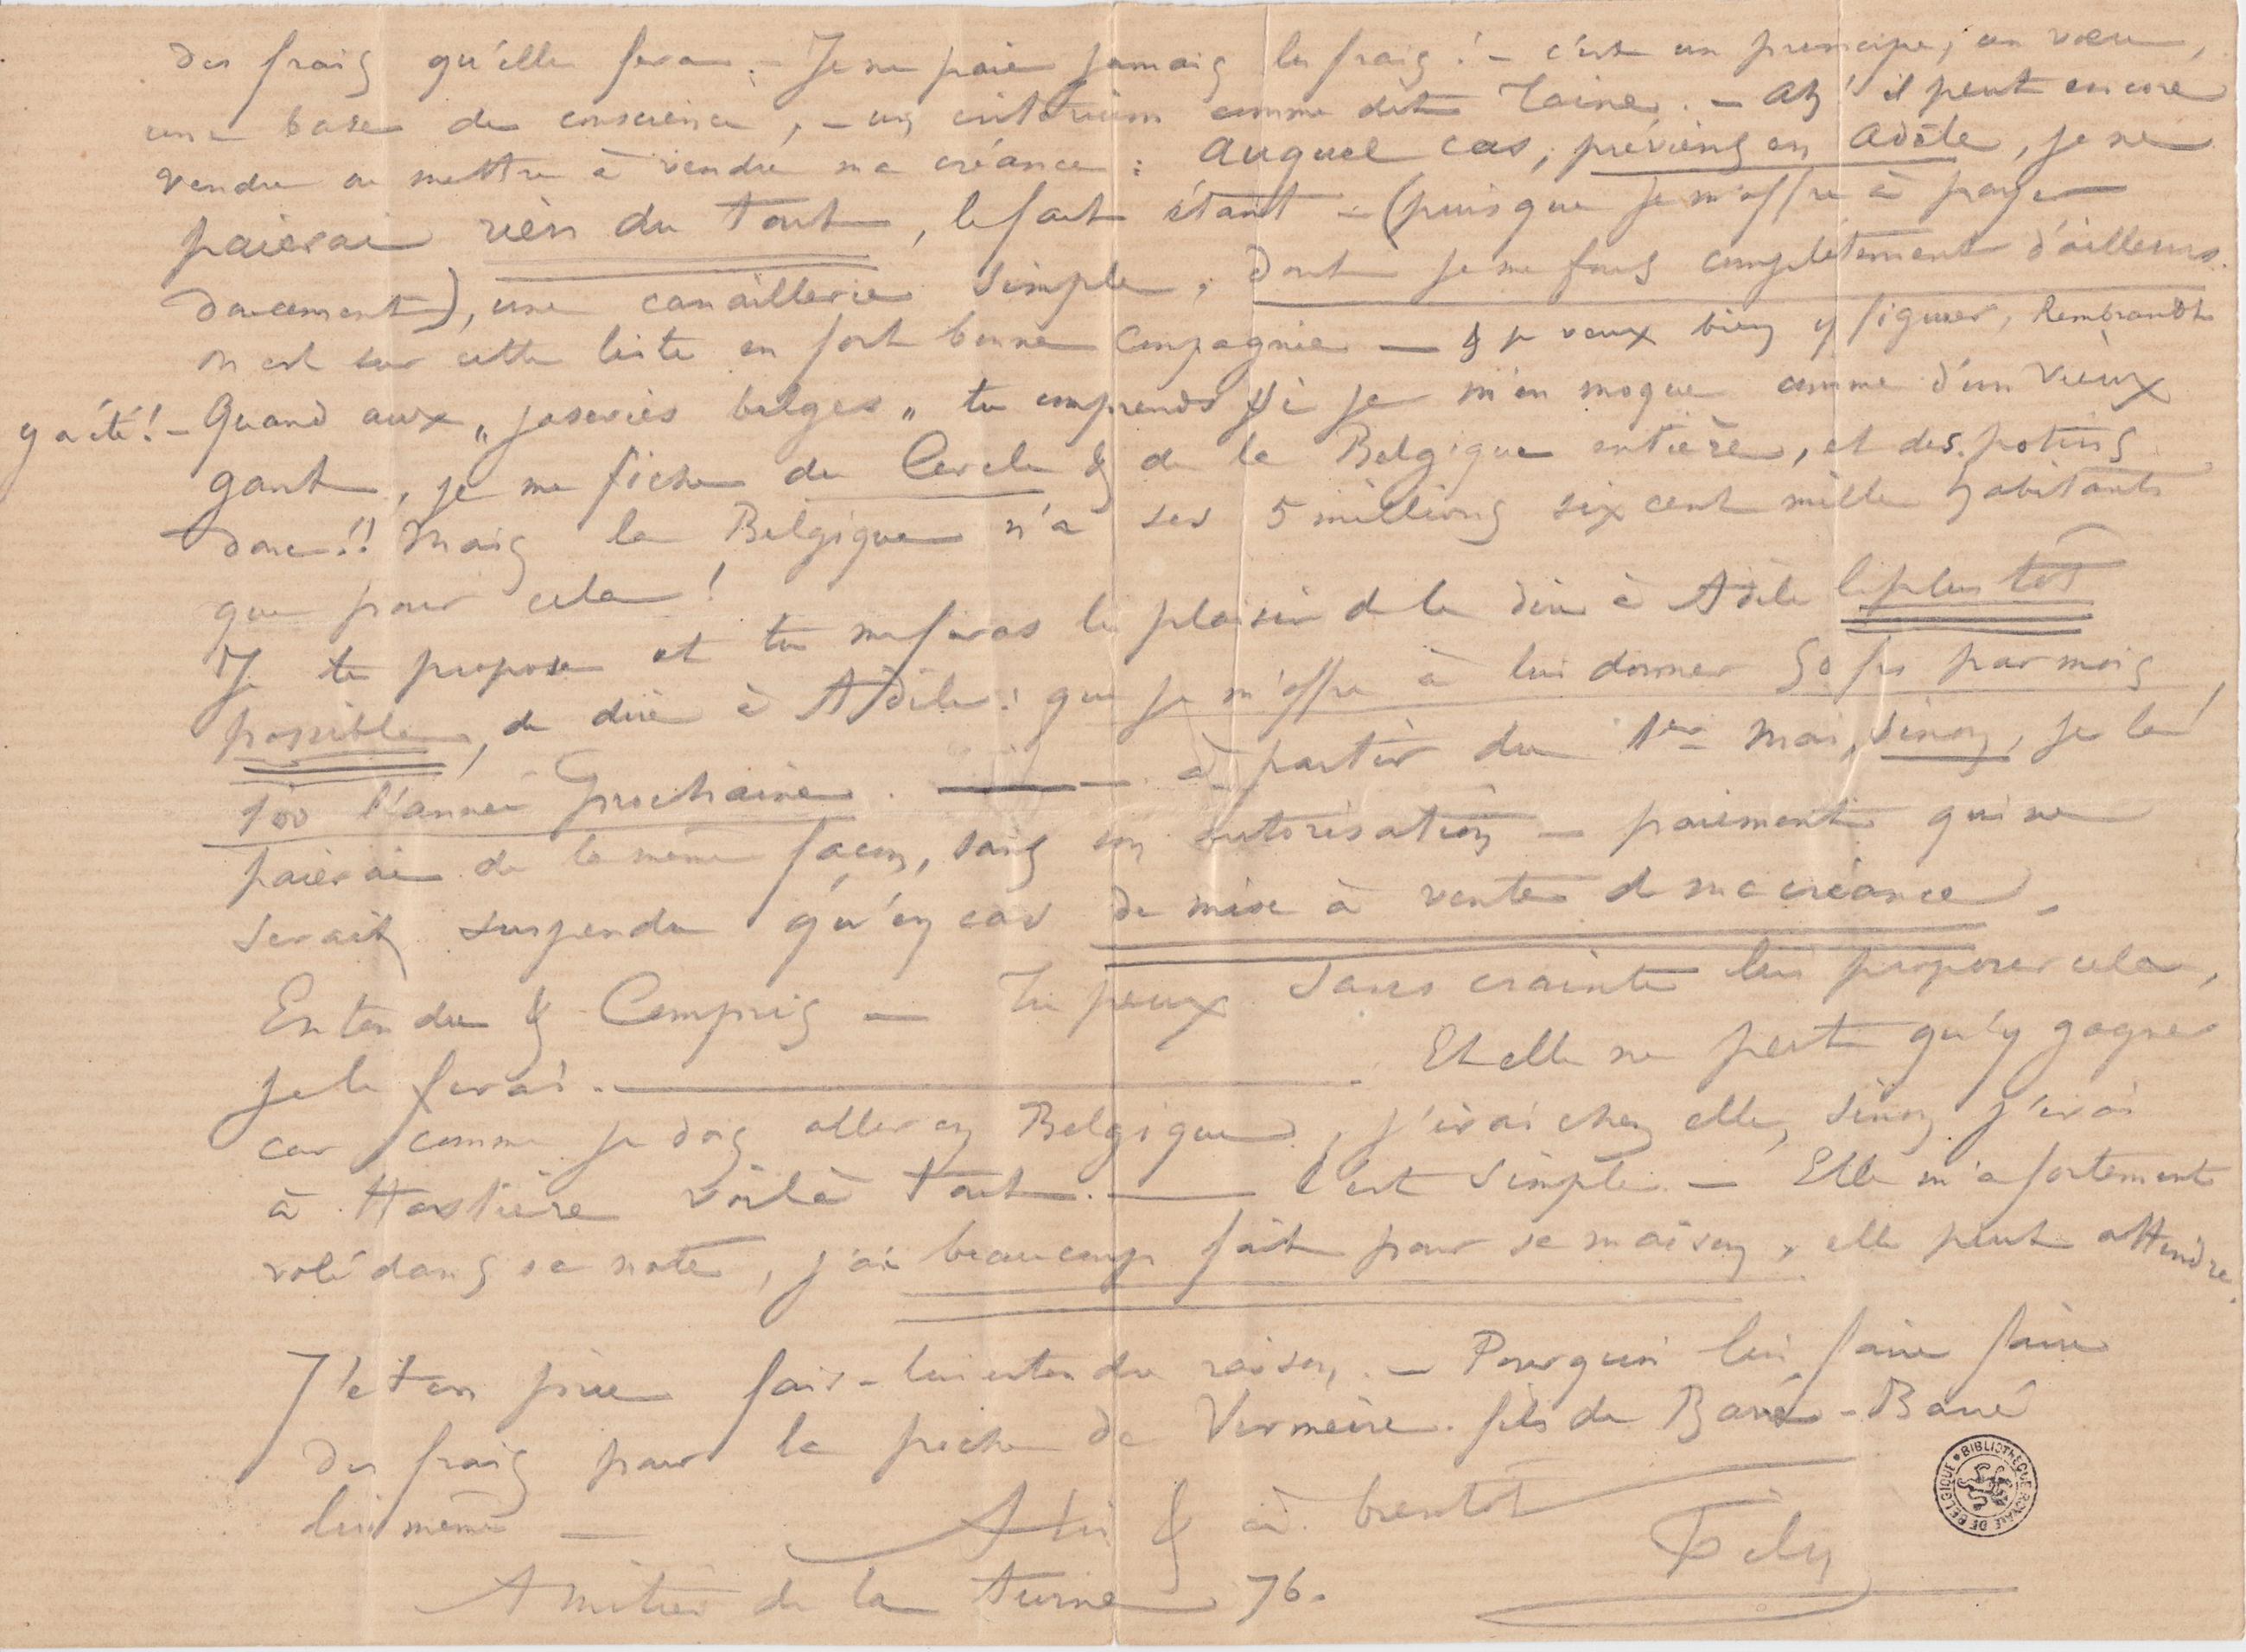 des frais qu'elle fera. – Je ne paie jamais les frais ! – c'est un principe, un vœu,
une base de conscience, – un critérium comme dit Taine. – Ah ! il peut encore
vendre ou mettre à vendre ma créance : Auquel cas, préviens en Adèle, je ne
paierai rien du tout, le fait étant – (puisque je m'offre à payer
doucement), une canaillerie simple, dont je me fous complètement d'ailleurs.
on est sur cette liste en fort bonne compagnie — & je veux bien y figurer, Rembrandt
y a été ! – Quand aux „ jaseries belges „ tu comprends si je m'en moque comme d'un vieux
gant, je me fiche du Cercle & de la Belgique entière, et des potins
donc !! Mais la Belgique n'a ses 5 millions six cent mille habitants
que pour cela !
Je te propose et tu me feras le plaisir de le dire à Adèle le plus tôt
possible, de dire à Adèle : que je m'offre à lui donner 50 frs par mois,
100 l'année prochaine. — à partir du 1er Mai, sinon, je le
paierai de la même façon, sans son autorisation – paiement qui ne
serait suspendu qu'en cas de mise à vente de ma créance.
Entendu & Compris — Tu peux sans crainte lui proposer cela,
je le ferai. — Et elle ne peut qu'y gagner
car comme je dois aller en Belgique, j'irai chez elle, sinon j'irai
à Hastière voilà tout. — C'est simple – Elle m'a fortement
volé dans sa note, j'ai beaucoup fait pour sa maison, elle peut attendre.
Je t'en prie fais-lui entendre raison. – Pourquoi lui faire faire
des frais pour la poche de Vermeire. fils de Baré-Baré
lui même —
A toi & à bientôt
Fély
Amitiés de la Turine 76.
BIBLIOTHÈQUE ROYALE DE BELGIQUE